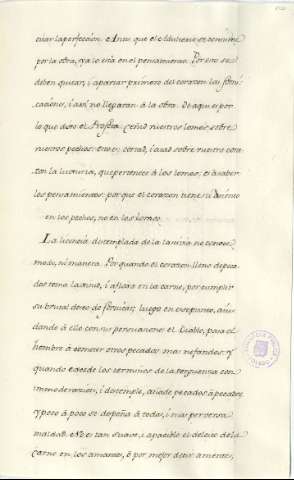 citar la perfeccion. Antes que el Adulterio se comunique
por la obra, ya lo está en el pensamiento. Por eso se
deben quitar, i apartar primero del corazon las forni-
caciones, i así no llegarán á la obra. De aqui es por
lo que dice el Profeta: Ceñid vuestros lomos sobre
vuestros pechos: esto es, cerrad, i atad sobre vuestro cora-
zon la luxuria, que pertenece á los lomos, es á saber
los pensamientos: porque el corazon tiene su asiento
en los pechos, no en los lomos.
La licencia destemplada de la lascivia no conoce
modo, ni manera. Por quando el corazon lleno de peca-
dos toma la mano, i aficion en la carne, por cumplir
su brutal deseo de fornicar; luego en ese punto, aiu-
dando á ello con sus persuasiones el Diablo, pasa el
hombre á cometer otros pecados mas nefandos: y
quando excede los terminos de la verguenza con
inmoderacion, i destemple, añade pecados á pecados,
y poco á poco se despeña á toda, i mas perversa
maldad. No es tan suave, i apacible el deleite de la
Carne en los amantes, ó por mejor decir amentes,